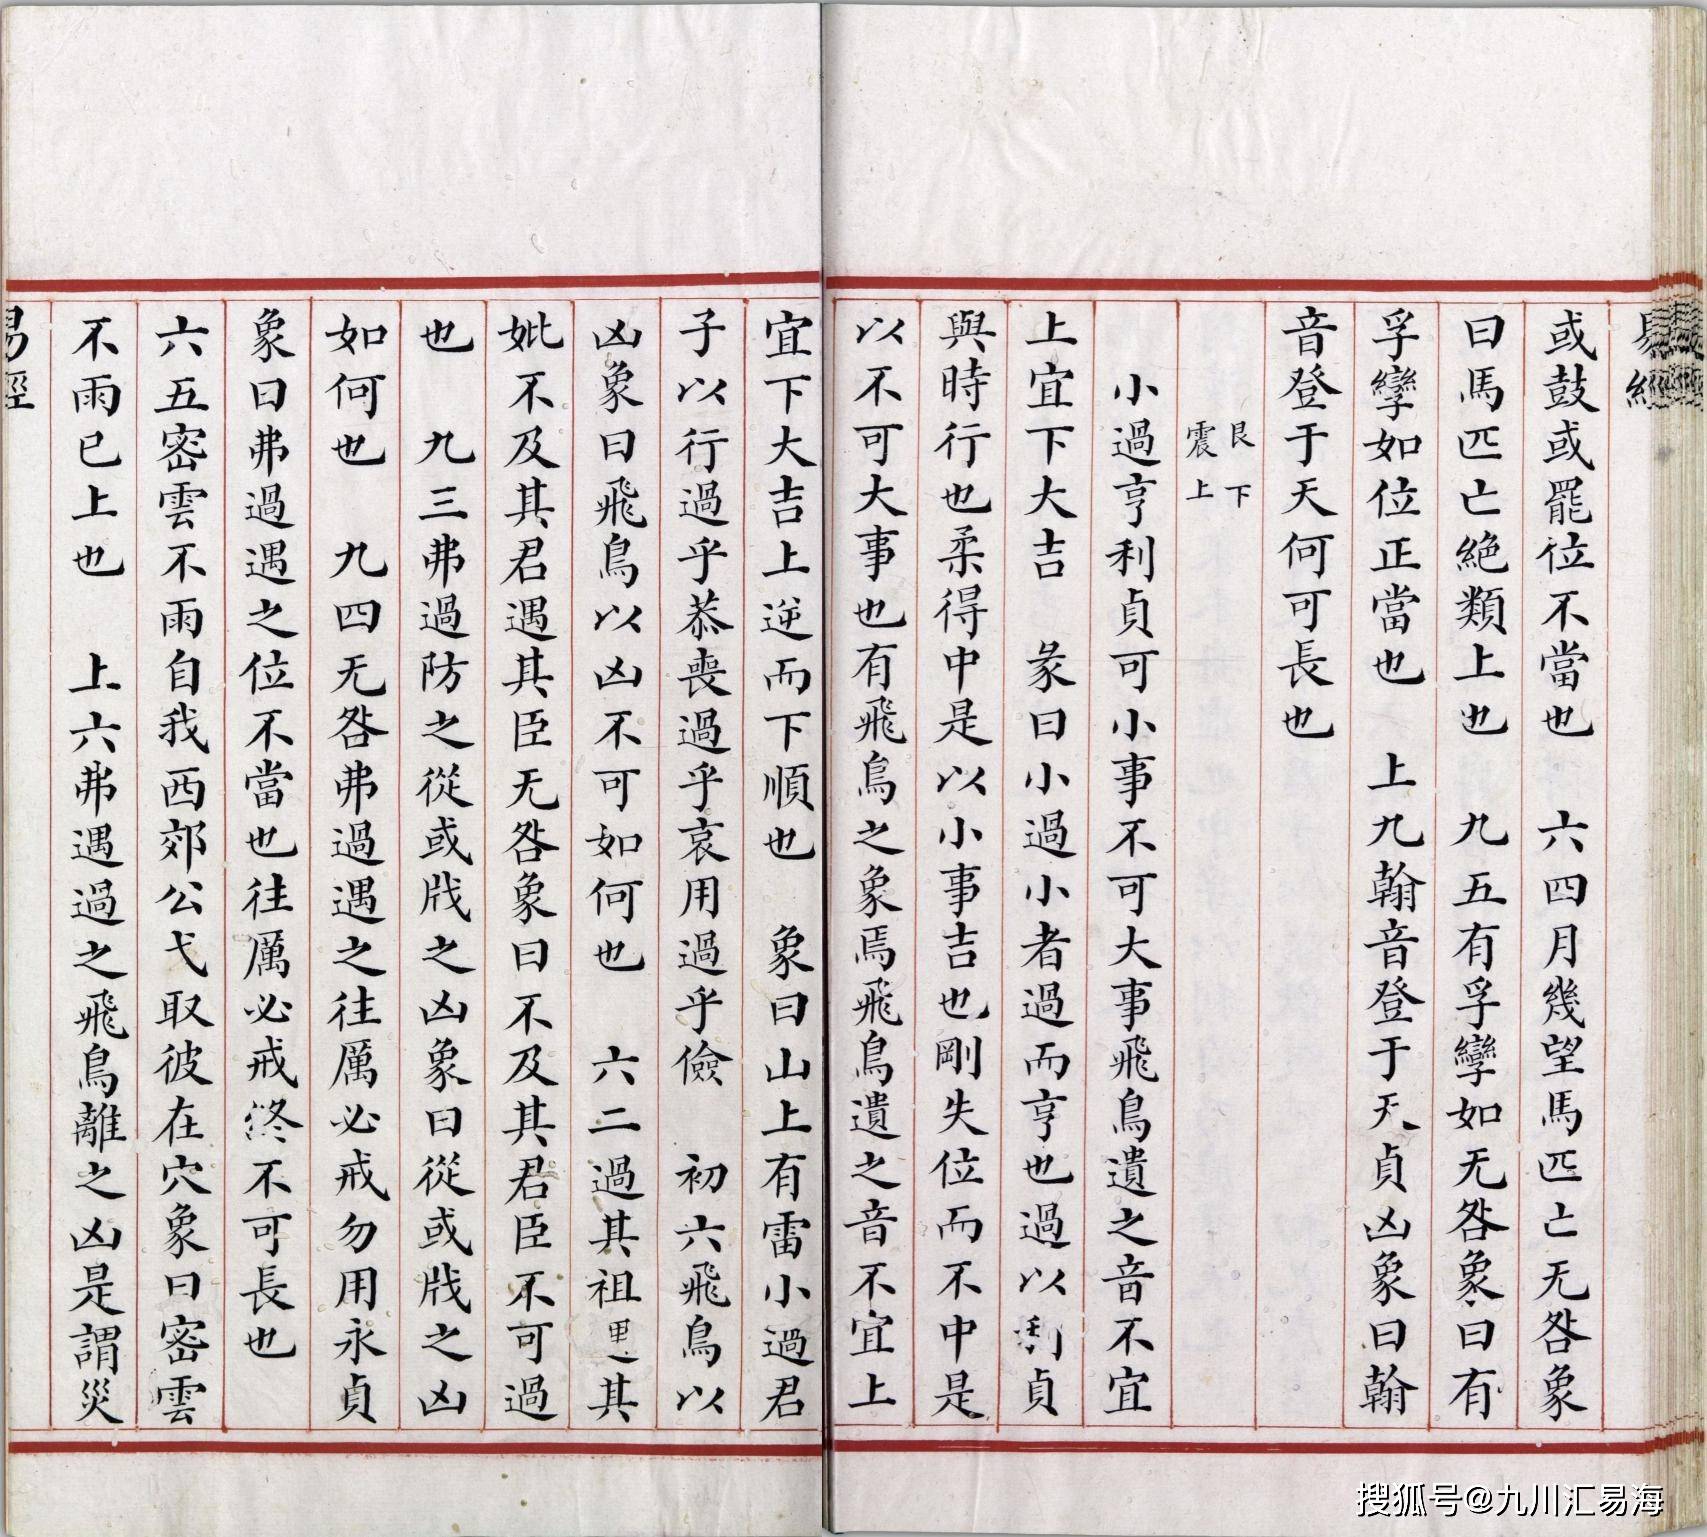 易經
或鼓或罷位不當也　六四月幾望馬匹亡无咎象
曰馬匹亡絕類上也　九五有孚攣如无咎象曰有
孚攣如位正當也　上九翰音登于天貞凶象曰翰
音登于天何可長也
艮下
震上
小過亨利貞可小事不可大事飛鳥遺之音不宜
上宜下大吉　彖曰小過小者過而亨也過以利貞
與時行也柔得中是以小事吉也剛失位而不中是
以不可大事也有飛鳥之象焉飛鳥遺之音不宜上
宜下大吉上逆而下順也　象曰山上有雷小過君
子以行過乎恭喪過乎哀用過乎儉　初六飛鳥以
凶象曰飛鳥以凶不可如何也　六二過其祖遇其
妣不及其君遇其臣无咎象曰不及其君臣不可過
也　九三弗過防之從或戕之凶象曰從或戕之凶
如何也　九四无咎弗過遇之往厲必戒勿用永貞
象曰弗過遇之位不當也往厲必戒終不可長也
六五密雲不雨自我西郊公弋取彼在穴象曰密雲
不雨已上也　上六弗遇過之飛鳥離之凶是謂災
易經
搜狐号@九川汇易海